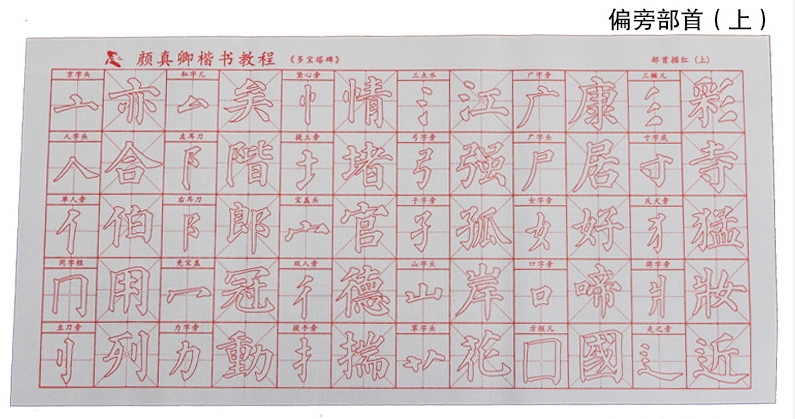 偏旁部首（上）
颜真卿楷书教程 《多宝塔碑》 部首描红（上）
京字头 私字儿 竖心旁 三点水 广字旁 三撇儿
亠 亦 厶 矣 忄 情 氵 江 广 康 彡 彩
人字头 左耳刀 提土旁 弓字旁 尸字头 寸字底
人 合 阝 階 土 堵 弓 强 尸 居 寸 寺
单人旁 右耳刀 宝盖头 子字旁 女字旁 反犬旁
亻 伯 阝 郎 宀 官 子 孤 女 好 犭 猛
同字框 秃宝盖 双人旁 山字头 口字旁 将字旁
冂 用 冖 冠 彳 德 山 岸 口 啼 爿 妝
立刀旁 力字旁 提手旁 草字头 方框儿 走之旁
刂 列 力 動 扌 揣 艹 花 囗 國 辶 近